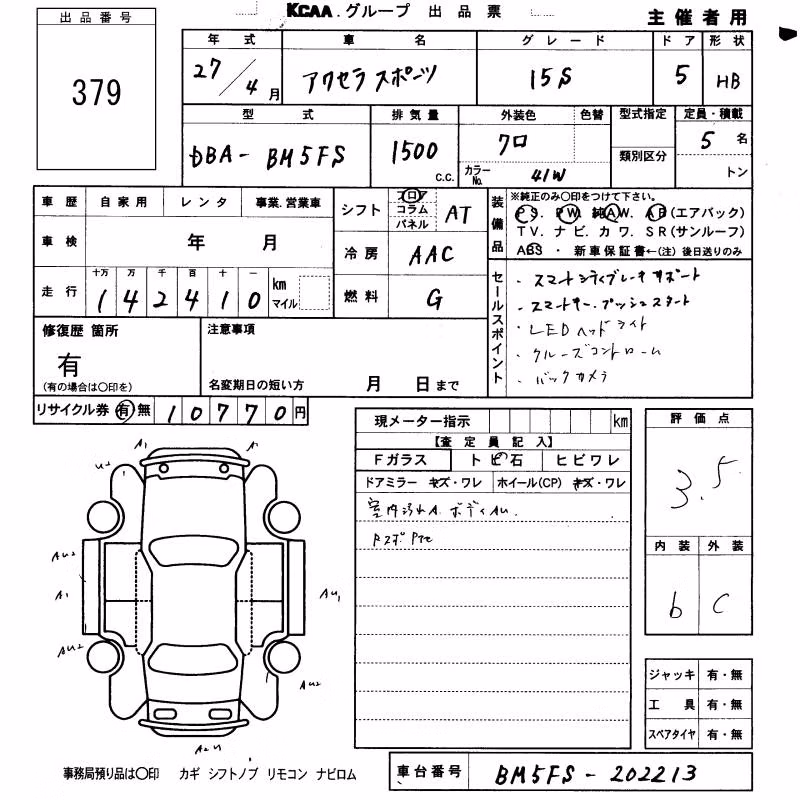 KCAA.グループ 出品票
主催者用
出品番号
379
年式 車名 グレード ドア 形状
27/4月 アクセラスポーツ 15S 5 HB
型式 排気量 外装色 色替 型式指定 定員・積載
DBA-BM5FS 1500 c.c. クロ カラーNo. 41W 類別区分 5名 トン
車歴 自家用 レンタ 事業・営業車
車検 年 月
走行 十万 万 千 百 十 一
142410 km マイル
シフト フロア コラム パネル AT
冷房 AAC
燃料 G
装備品
※純正のみ○印をつけて下さい。
PS. PW. 純AW. AB(エアバック)
TV. ナビ. カワ. SR(サンルーフ)
ABS ・ 新車保証書←(注) 後日送りのみ
セールスポイント
・スマートシティブレーキサポート
・スマートキー.プッシュスタート
・LEDヘッドライト
・クルーズコントロール
・バックカメラ
修復歴 箇所
有
(有の場合は○印を)
注意事項
名変期日の短い方 月 日まで
リサイクル券 有 無 10770円
現メーター指示 km
【査定員記入】
Fガラス トビ石 ヒビワレ
ドアミラー キズ・ワレ ホイール(CP) キズ・ワレ
室内汚れA. ボディAU.
評価点
3.5
内装 外装
b C
A1 A
U2 A
AU2
A1
AU2
AU1
AU2
A2U
ジャッキ 有・無
工具 有・無
スペアタイヤ 有・無
事務局預り品は○印 カギ シフトノブ リモコン ナビロム
車台番号 BM5FS-202213